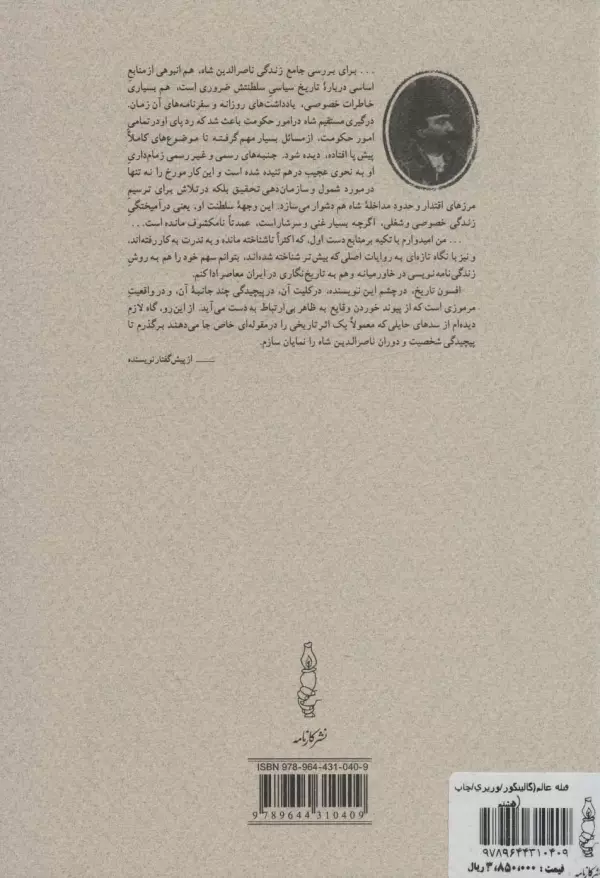 ... برای بررسی جامع زندگی ناصرالدین شاه، هم انبوهی از منابع
اساسی دربارهٔ تاریخ سیاسی سلطنتش ضروری است، هم بسیاری
خاطرات خصوصی، یادداشت‌های روزانه و سفرنامه‌های آن زمان.
درگیری مستقیم شاه در امور حکومت باعث شد که رد پای او در تمامی
امور حکومت، از مسائل بسیار مهم گرفته تا موضوع‌های کاملاً
پیش پا افتاده، دیده شود. جنبه‌های رسمی و غیر رسمی زمام‌داری
او به نحوی عجیب در هم تنیده شده است و این کار مورخ را نه تنها
در مورد شمول و سازمان‌دهی تحقیق بلکه در تلاش برای ترسیم
مرزهای اقتدار و حدود مداخلهٔ شاه هم دشوار می‌سازد. این وجههٔ سلطنت او، یعنی درآمیختگی
زندگی خصوصی و شغلی، اگرچه بسیار غنی و سرشار است، عمدتاً نامکشوف مانده است ...
... من امیدوارم با تکیه بر منابع دست اول، که اکثراً ناشناخته مانده و به ندرت به کار رفته‌اند،
و نیز با نگاه تازه‌ای به روایات اصلی که بیش‌تر شناخته شده‌اند، بتوانم سهم خود را هم به روشِ
زندگی‌نامه نویسی در خاورمیانه و هم به تاریخ‌نگاری در ایران معاصر ادا کنم.
افسون تاریخ، در چشم این نویسنده، در کلیت آن، در پیچیدگی چند جانبهٔ آن، و در واقعیتِ
مرموزی است که از پیوند خوردن وقایع به ظاهر بی‌ارتباط به دست می‌آید. از این رو، گاه لازم
دیده‌ام از سدهای حایلی که معمولاً یک اثر تاریخی را در مقوله‌ای خاص جا می‌دهند برگذرم تا
پیچیدگی شخصیت و دوران ناصرالدین شاه را نمایان سازم.
از پیش‌گفتار نویسنده
نشر کارنامه
ISBN 978-964-431-040-9
9 789644 310409
قبله عالم(گالینگور/وزیری/چاپ
هشتم)
۹۷۸۹۶۴۴۳۱۰۴۰۹
قیمت: ۳،۸۵۰،۰۰۰ ریال
نشر کارنامه